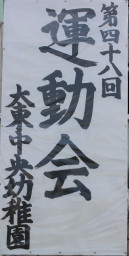 第四十八回
運動会
太東中央幼稚園